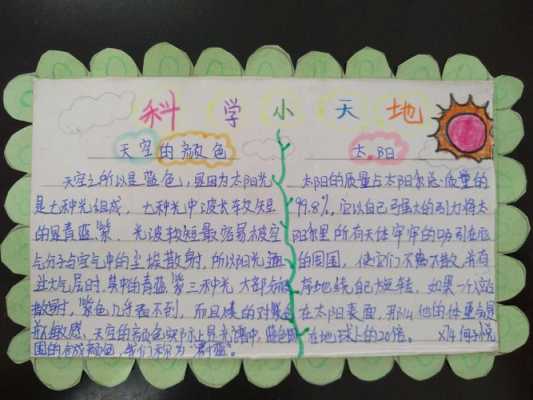 科学小天地
天空的颜色
天空之所以是蓝色,是因为太阳光
是七种光组成,七种光中波长较短
的是青蓝紫,光波较短最容易被空
气分子与空气中的尘埃散射,所以阳光通
过大气层时,其中的青蓝紫三种光大部分被
散射,紫色几乎看不到,而且人的对紫色
不敏感,天空的颜色实际上是光谱中蓝色
国的合成颜色,我们称为"青蓝"。
太阳
太阳的质量占太阳系总质量的
99.8%,它以自己强大的引力将太
阳系里所有天体牢牢的吸引在它
的周围,使它们不离不散,井有
序地绕自己旋转,如果一个人站
在太阳表面,那么他的体重会是
在地球上的20倍。